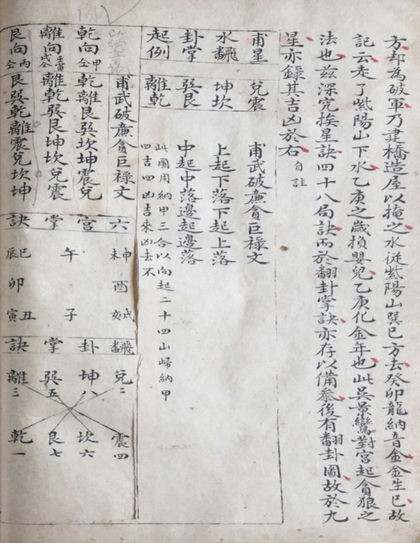 方却為破軍乃建橋造屋以掩之水従紫陽山巽巳方去癸卯龍納音金金生巳故
記云走了紫陽山下水乙庚之歲損嬰兒乙庚化金年也此吳景鸞對宮起貪狼之
法也玆深究挨星訣四十八局訣而於翻卦掌訣亦存以備參後有翻卦圖故於九
星亦錄其吉凶於右 自註
甫星 水翻 卦掌 起例
兌震 坎坤 巽艮 離乾
甫武破廉貪巨祿文
上起下落下起上落
中起中落邊起邊落
此圖用納甲三合以向起二十四山歸納甲
四吉四凶吉來凶去不
甫武破廉貪巨祿文
乾向 甲仝 乾離艮巽坎坤震兌
離向 離乾巽艮坤坎兌震
艮向 丙仝 艮巽乾離震兌坎坤
六宮掌訣
未申 酉 戌亥
午 子
辰巳 卯 寅丑
翻卦掌訣
兌二 震四
坤八 坎六
巽五 艮七
離三 乾一